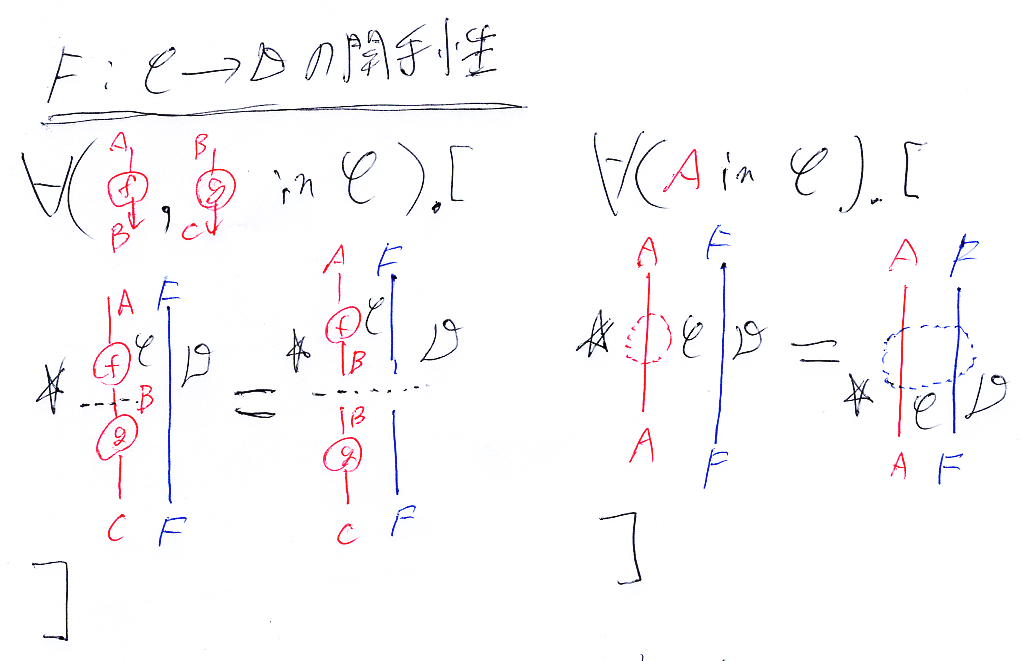 F : 𝒞 → 𝒟 の関手性
∀( A f B , B g C in 𝒞 ).[
A F
f 𝒞
* B 𝒟
g
C F
=
A F
f 𝒞
* B 𝒟
B
g
C F
]
∀( A in 𝒞 ).[
A F
* 𝒞 𝒟
A F
=
A F
* 𝒞 𝒟
A F
]